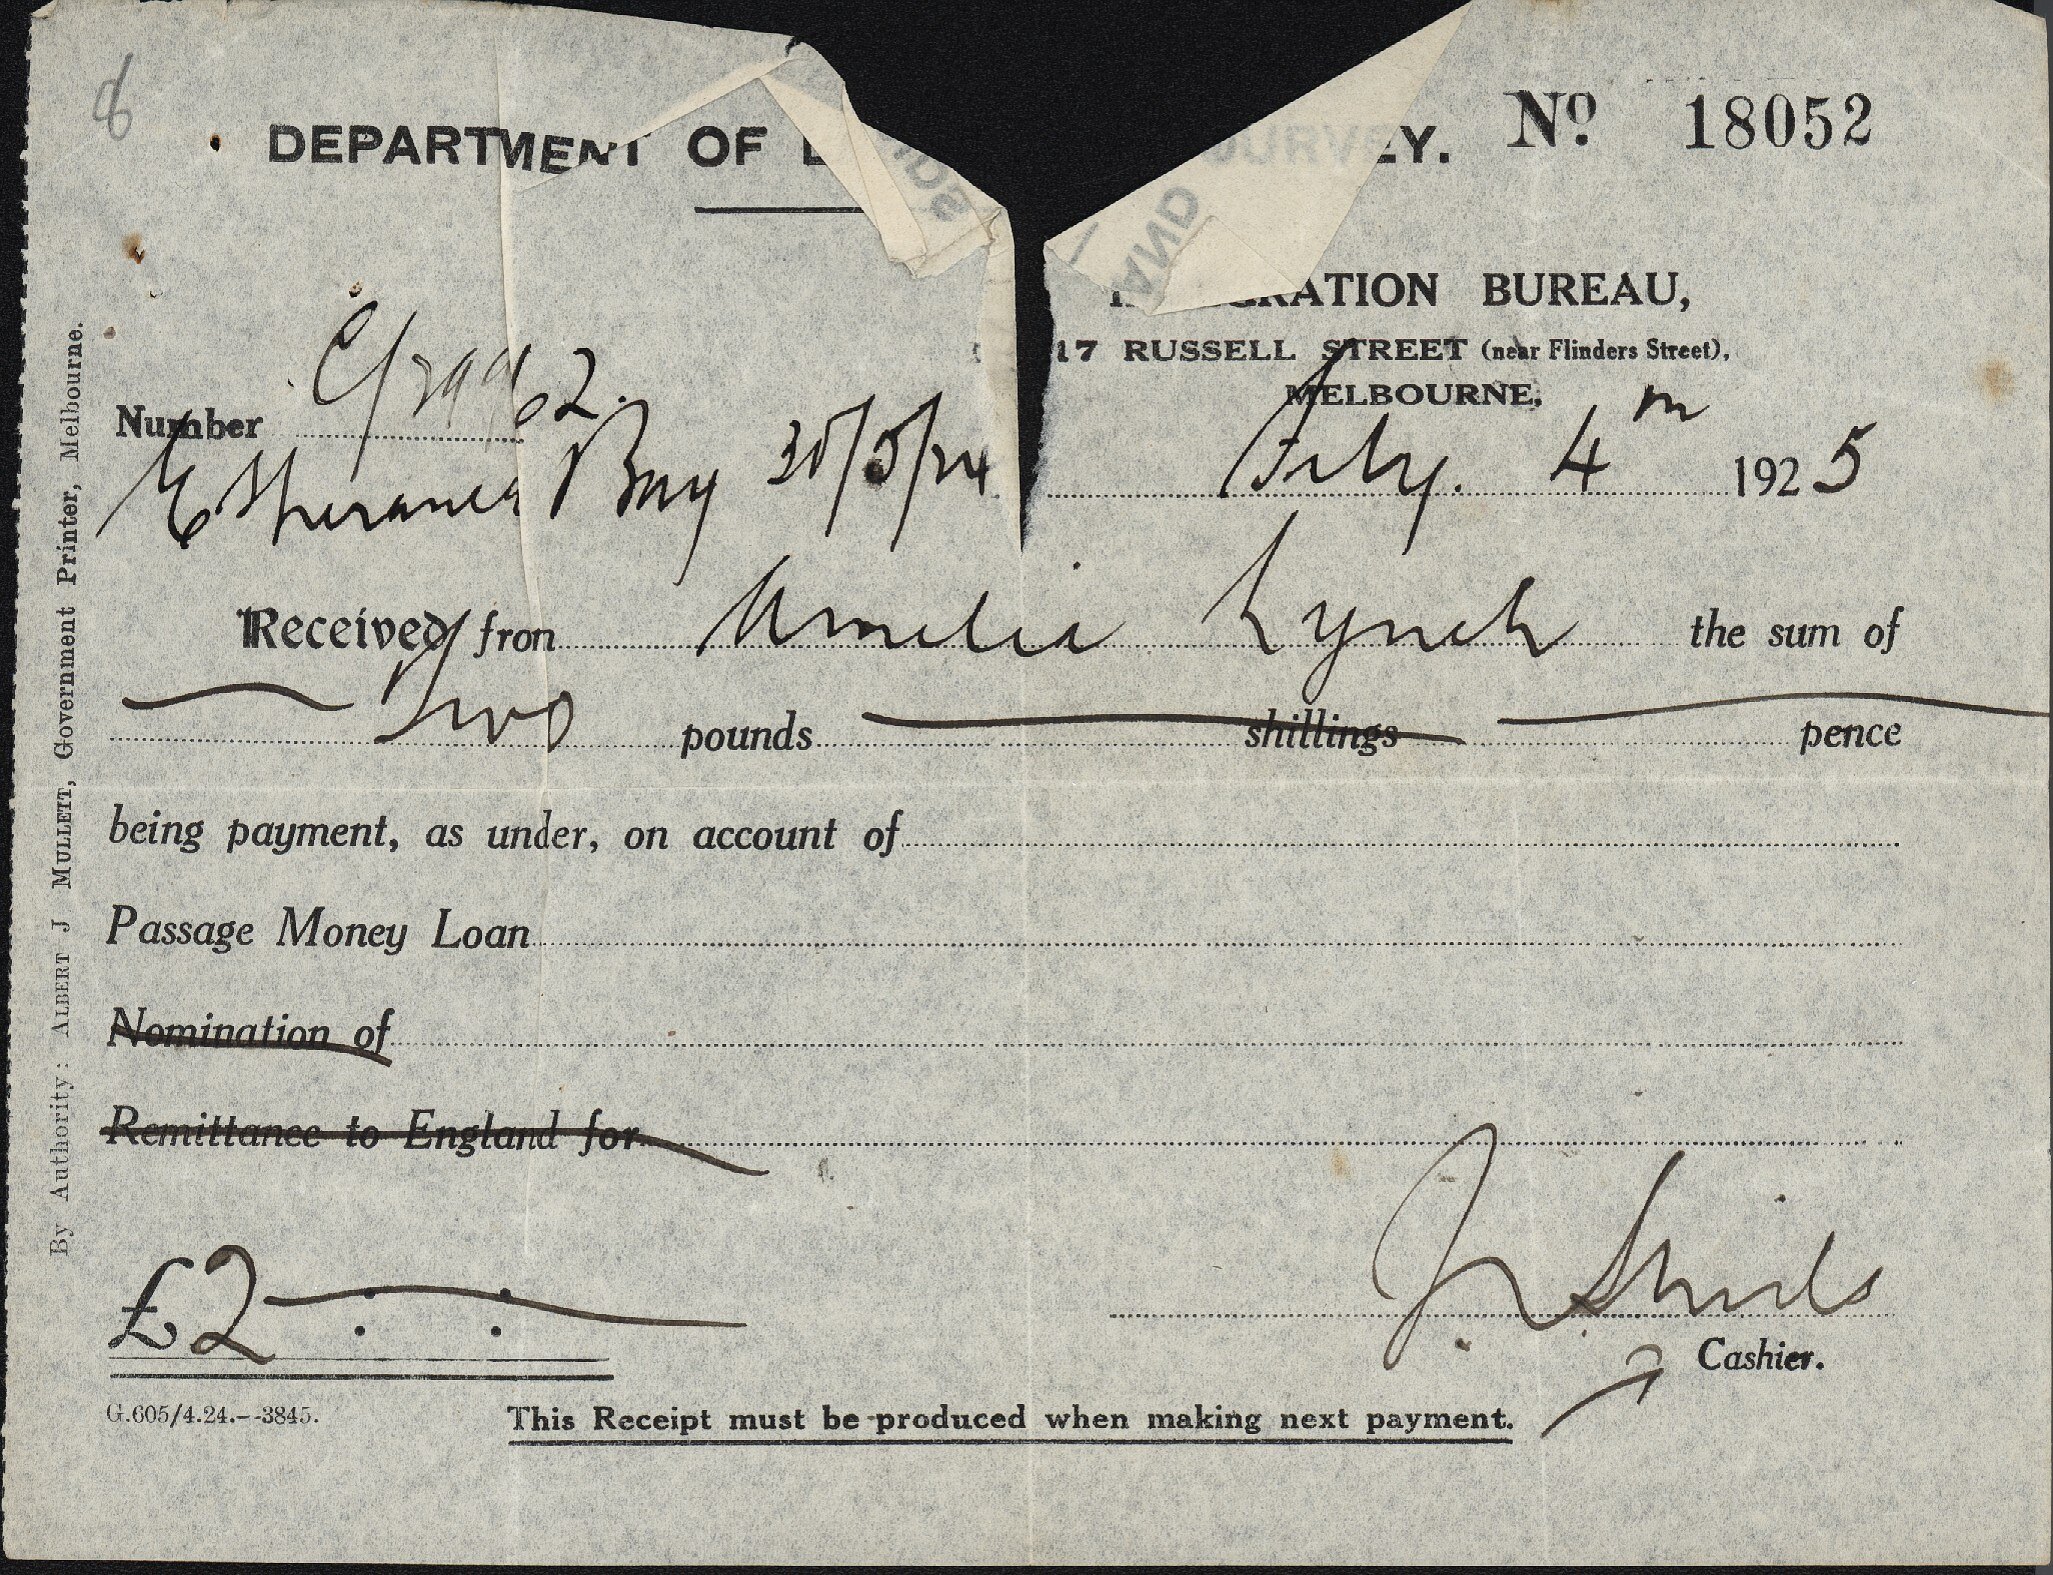 DEPARTMENT OF EY. Nº 18052
BUREAU,
17 RUSSELL STREET (near Flinders Street),
MELBOURNE,
Number
Esperance Bay 30/5/24 Feby. 4th 1925
Received from Amelia Lynch the sum of
Two pounds shillings pence
being payment, as under, on account of
Passage Money Loan
Nomination of
Remittance to England for
£2
J. Shields
Cashier.
G.605/4.24.--3845. This Receipt must be produced when making next payment.
By Authority: ALBERT J MULLETT, Government Printer, Melbourne.